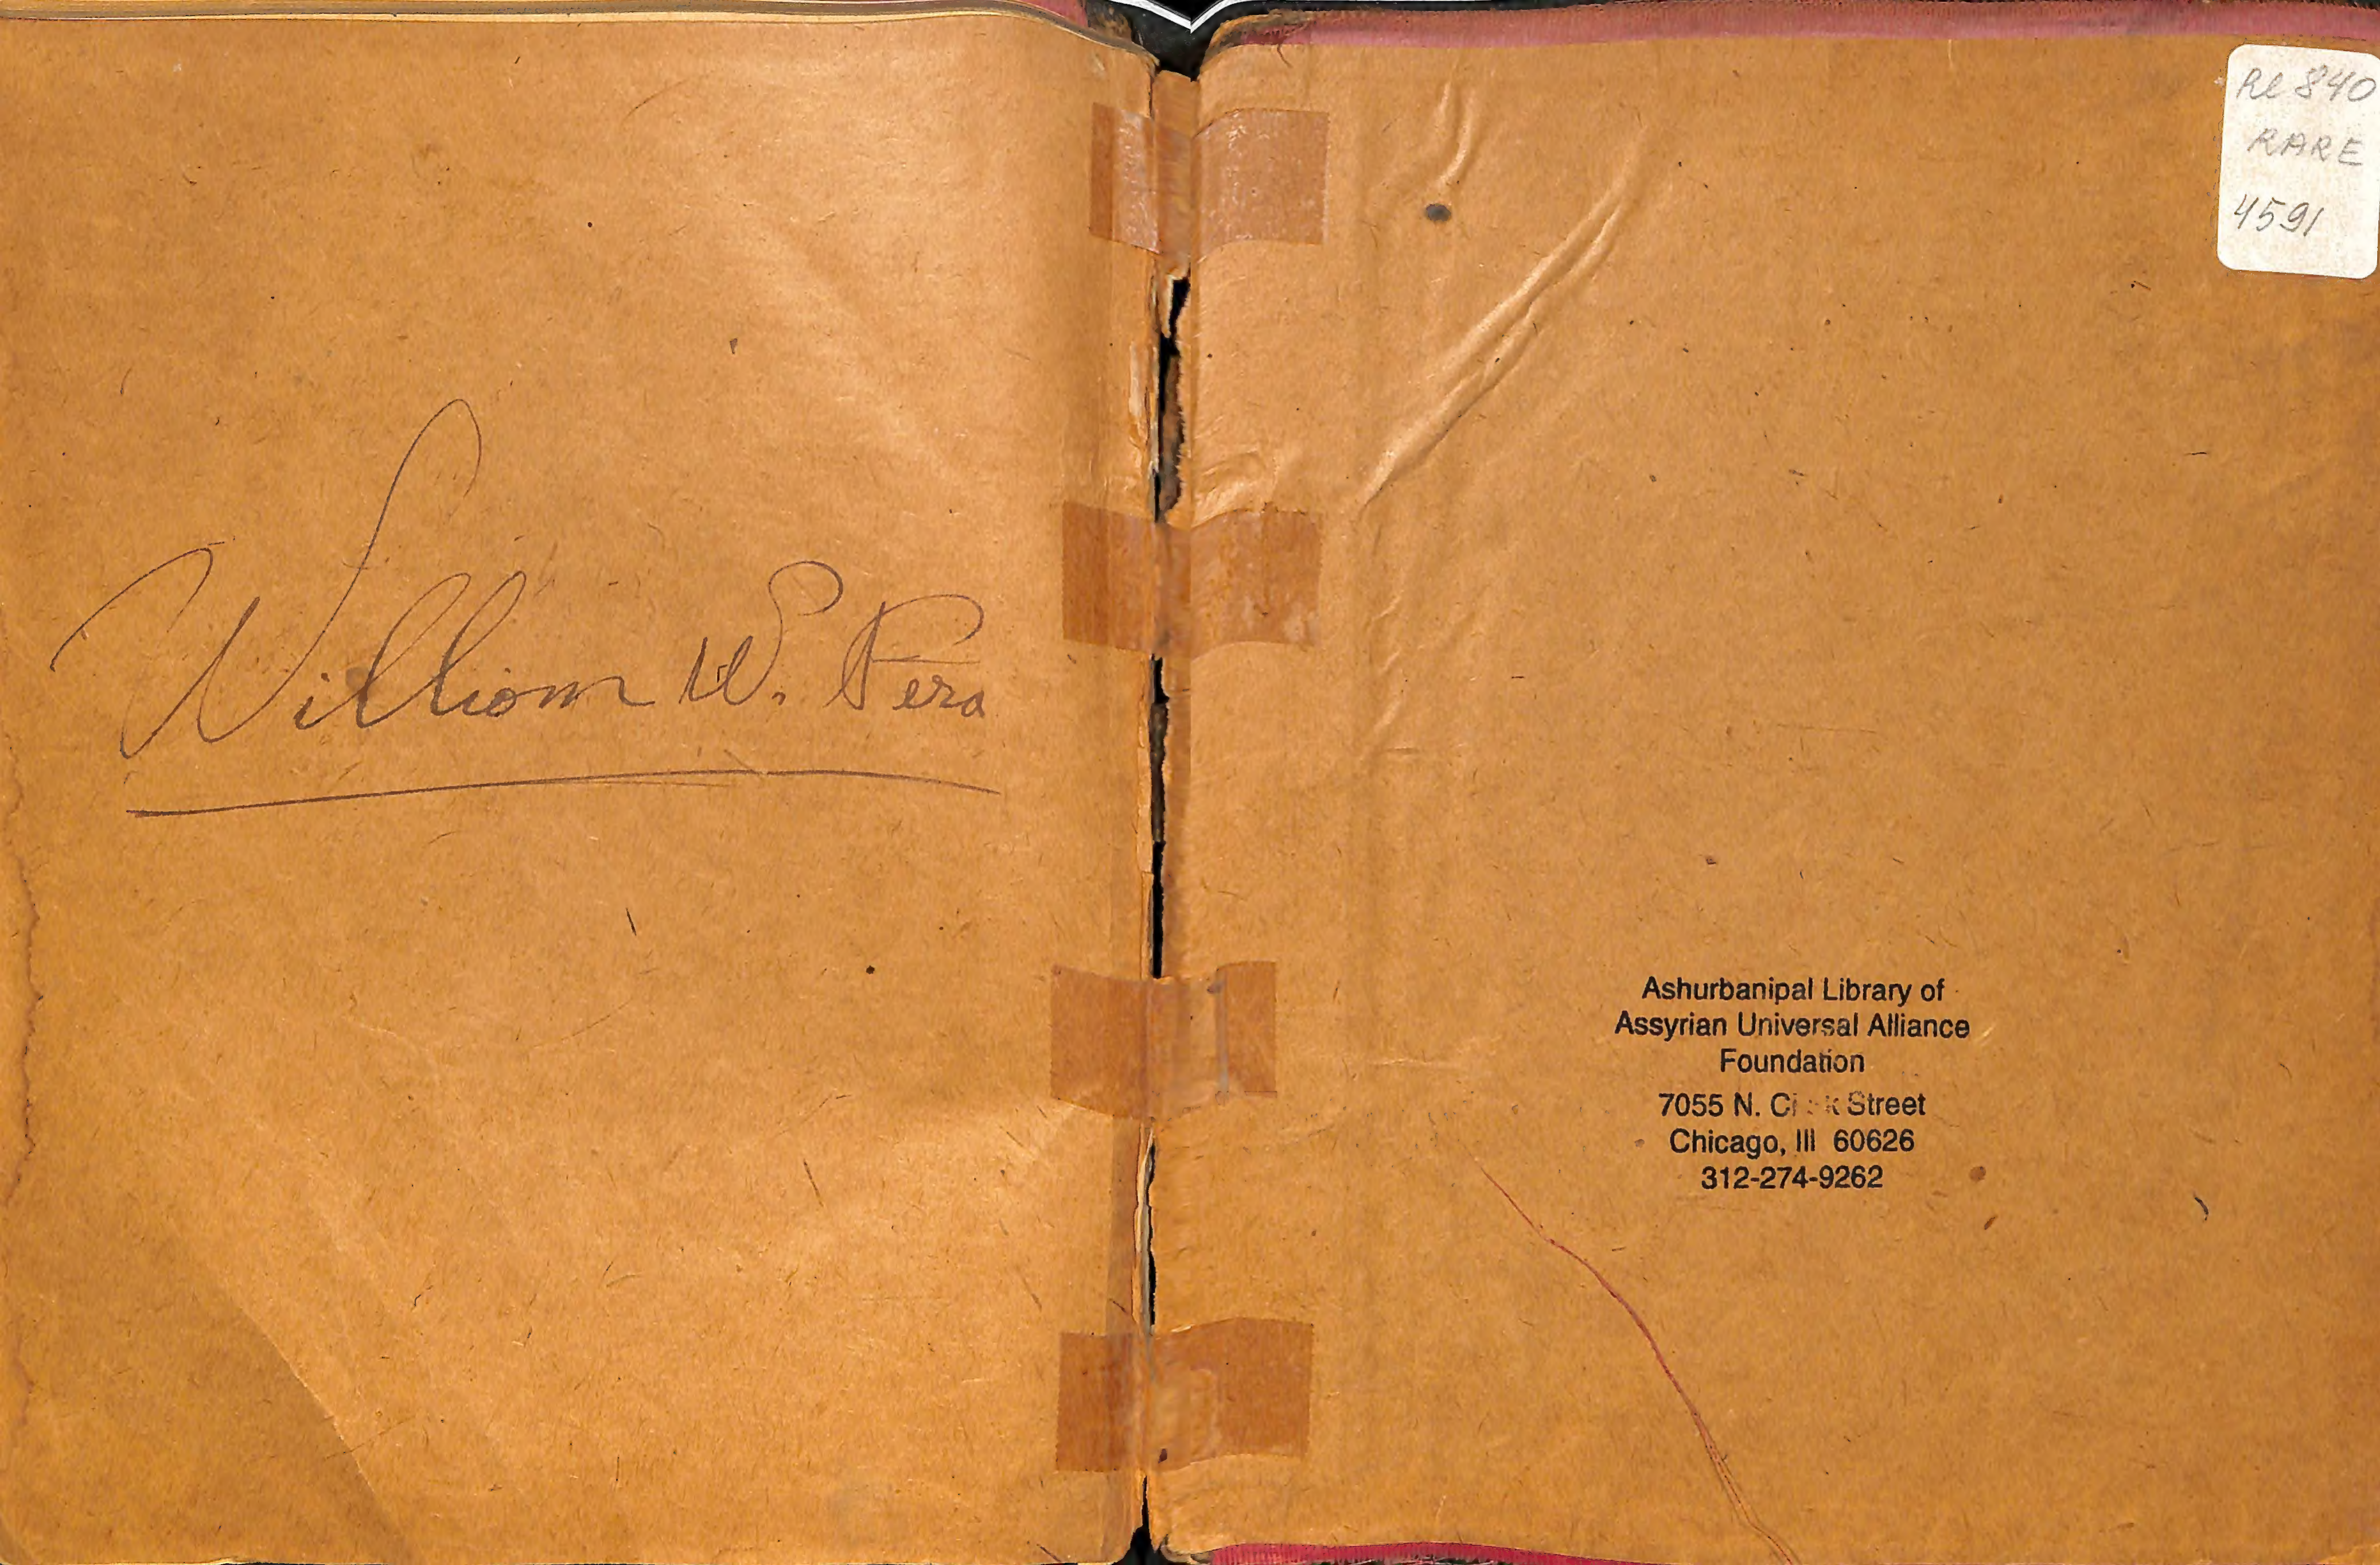 William W. Pera
Re 840
RARE
4591
Ashurbanipal Library of
Assyrian Universal Alliance
Foundation
7055 N. Street
Chicago, Ill 60626
312-274-9262